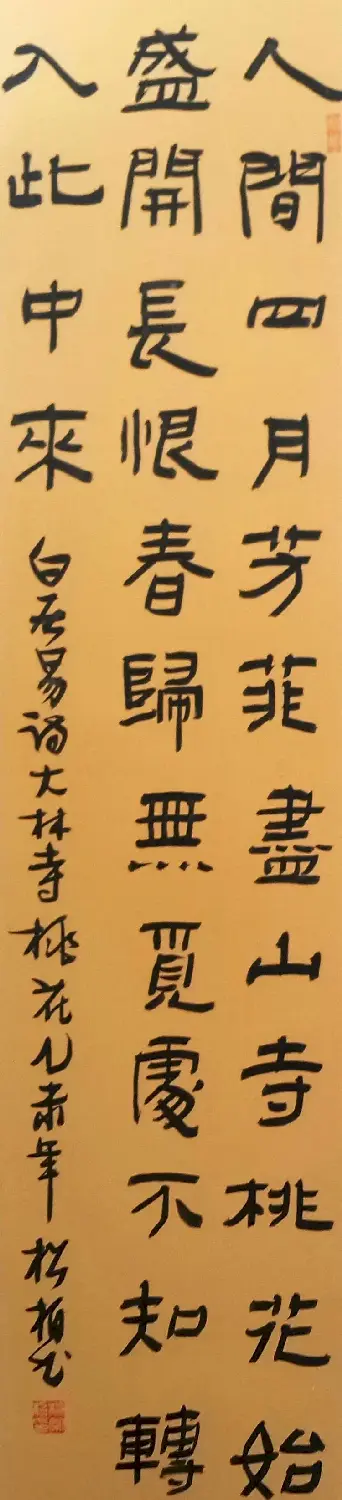 人間四月芳菲盡山寺桃花始
盛開長恨春歸無覓處不知轉
入此中來
白居易詩大林寺桃花乙未年 松柏書